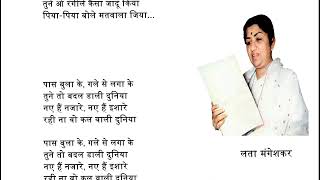 तुने ओ रंगीले कैसा जादू किया
पिया-पिया बोले मतवाला जिया...
पास बुला के, गले से लगा के
तुने तो बदल डाली दुनिया
नए हैं नजारे, नए हैं इशारे
रही ना वो कल वाली दुनिया
पास बुला के, गले से लगा के
तुने तो बदल डाली दुनिया
नए हैं नजारे, नए हैं इशारे
रही ना वो कल वाली दुनिया
लता मंगेशकर